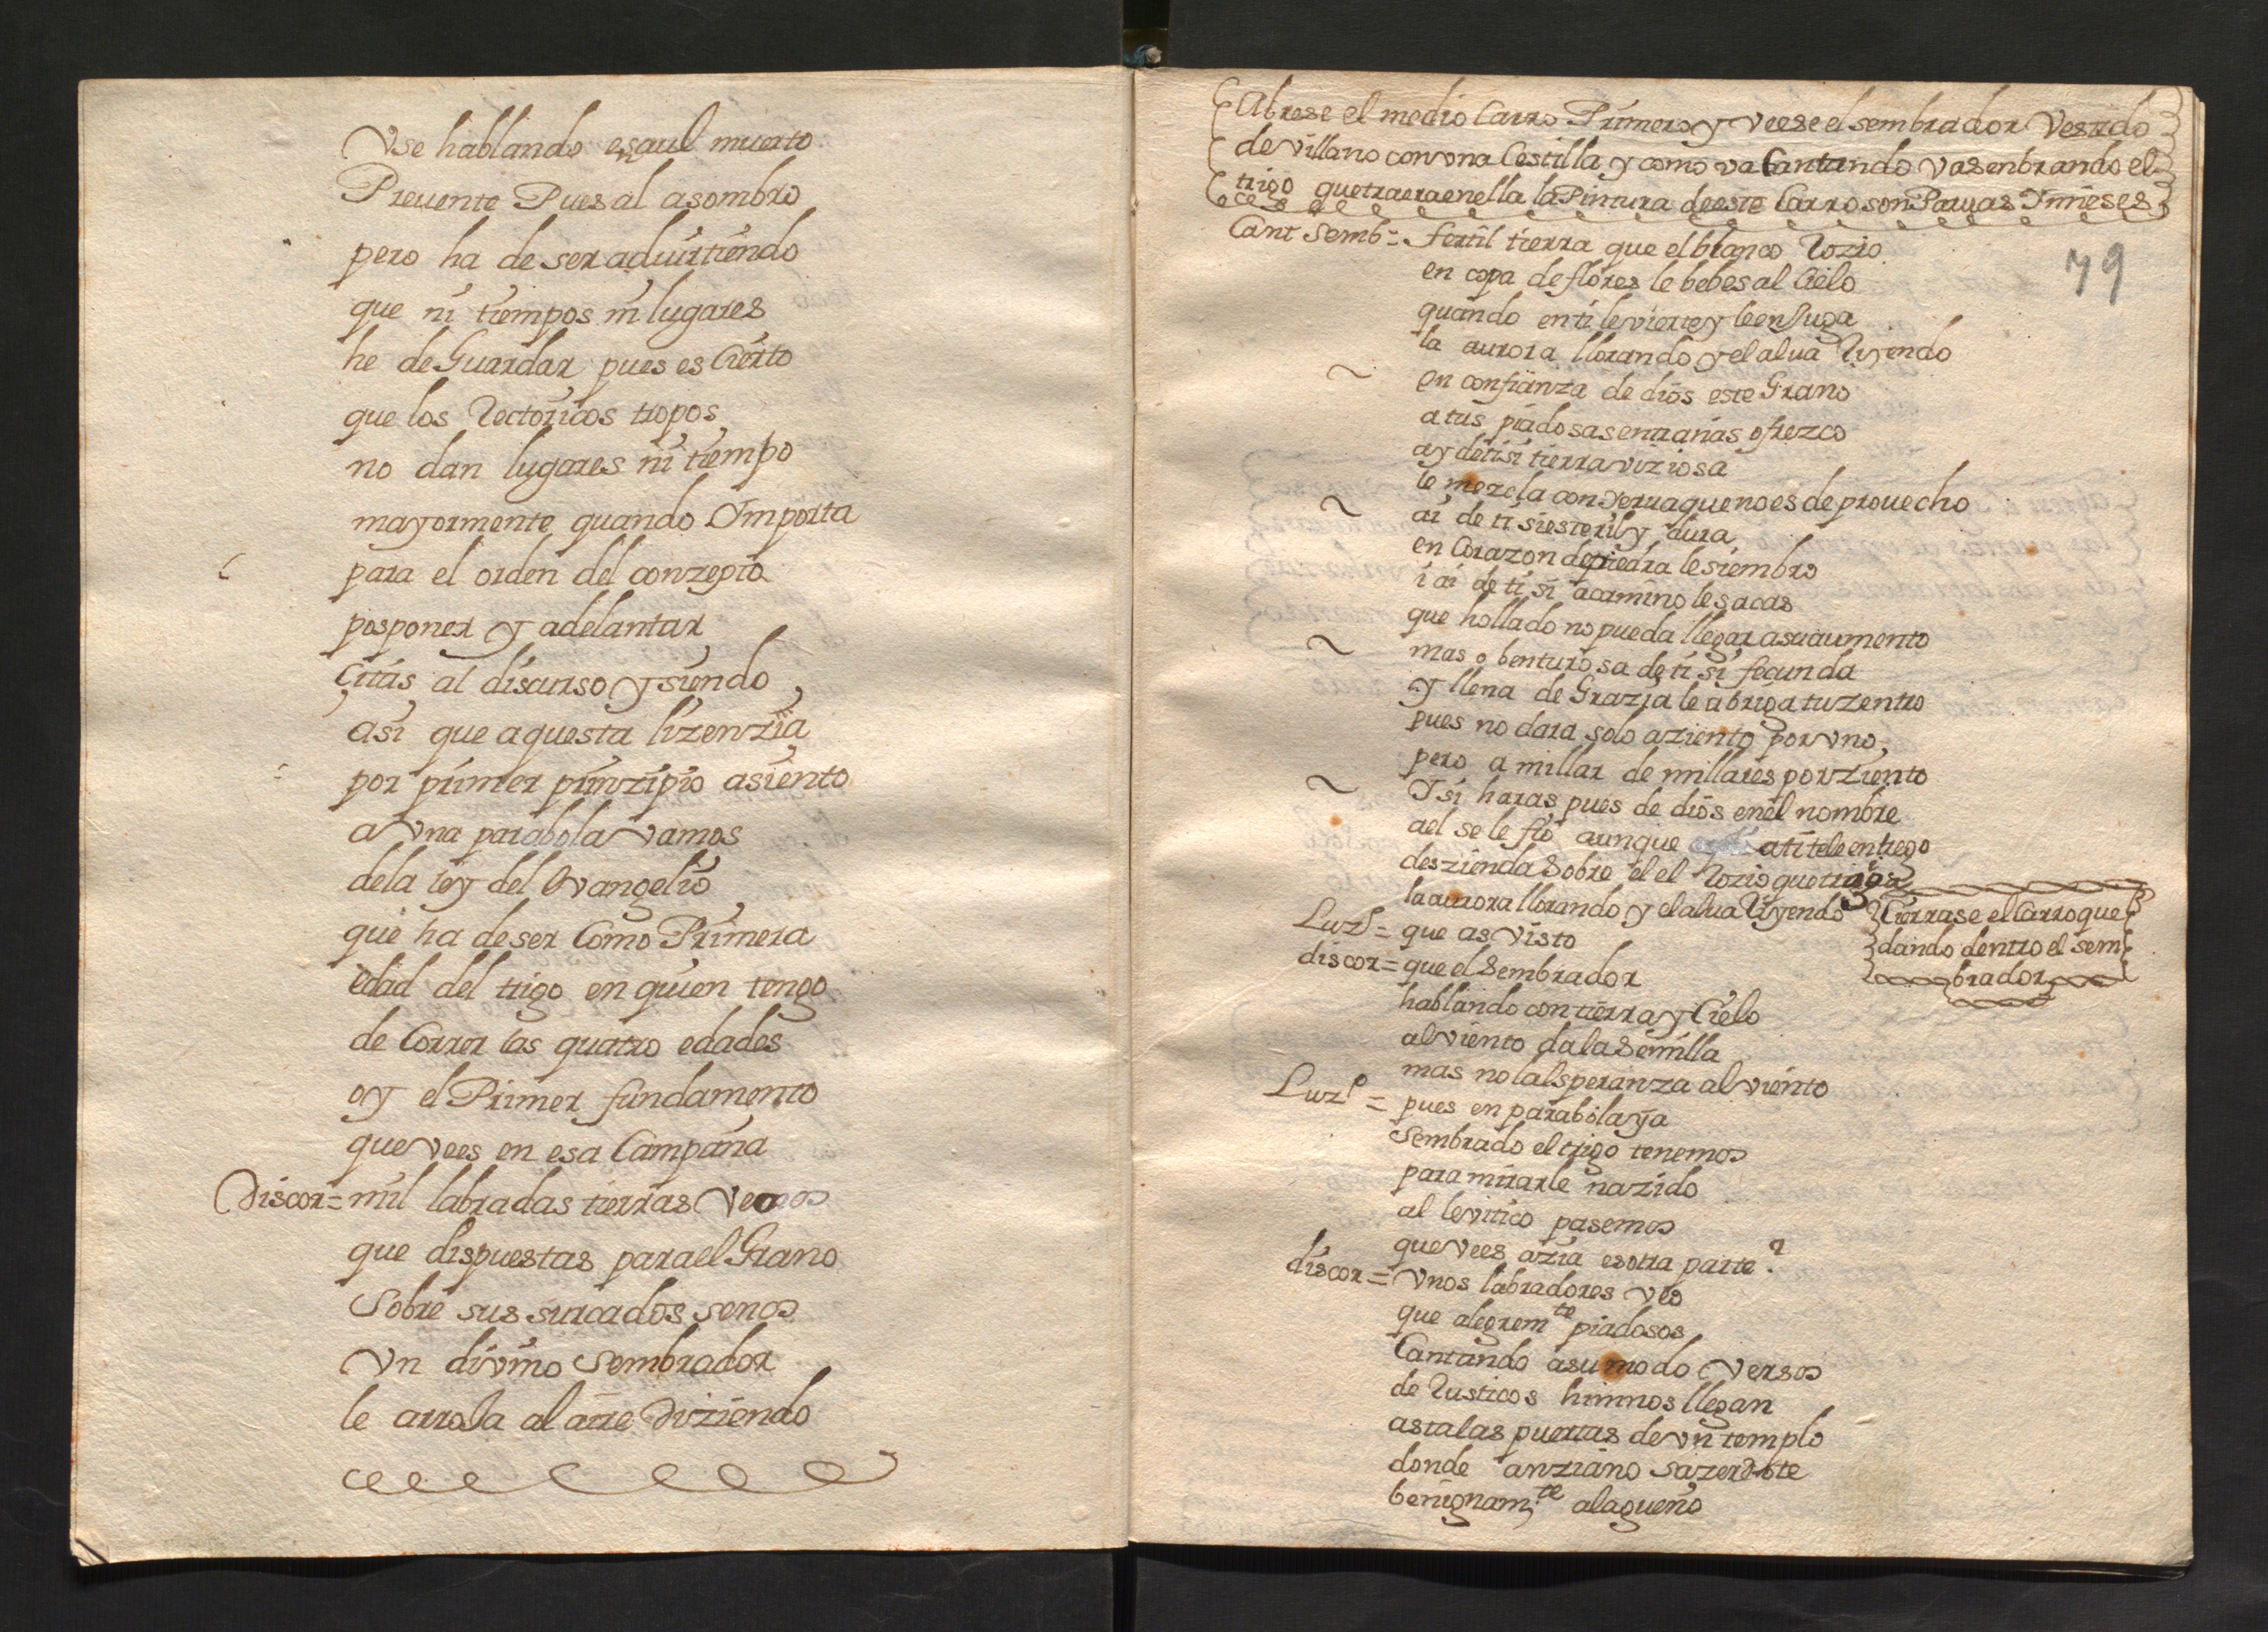 Vse hablando esaul muerto
Preuente Pues al asombro
pero ha de ser aduirtiendo
que ni tiempos ni lugares
he de Guardar pues es Cierto
que los Rectoricos tropos
no dan lugares ni tiempo
mayormente quando Ymporta
para el orden del conzepto
posponer y adelantar
Çitas al discurso y siendo
asi que aquesta lizenzia
por primer prinzipio asiento
a Vna parabola Vamos
dela ley del Evangelio
que ha de ser Como Primera
edad del trigo en quien tengo
de Correr las quatro edades
oy el Primer fundamento
que vees en esa Campaña
Discor = mil labradas tierras Veo
que dispuestas para el Grano
Sobre sus surcados senos
Vn divino Sembrador
le arroJa al aire Diziendo
Abrese el medio Carro Primero y Veese el sembrador Vestido
de Villano con vna Cestilla y como va Cantando Va senbrando el
trigo que traera en ella la Pintura de este Carro son Paruas Y mieses
79
Cant Semb = fertil tierra que el blanco Rozio
en copa de flores le bebes al Cielo
quando en ti le vierte y le enJuga
la aurora llorando y el alua Riyendo
~ en confianza de dios este Grano
a tus piadosas entrañas ofrezco
ay de ti si tierra viziosa
le mezcla con yerua que no es de prouecho
~ ai de ti si esteril y dura
en Corazon de piedra le siembro
i ai de ti si a camino le sacas
que hollado no pueda llegar a su aumento
~ mas o benturosa de ti si fecunda
y llena de Grazia le abriga tu zentro
pues no dara solo a ziento por vno
pero a millar de millares por ziento
~ Y si haras pues de dios en el nombre
a el se le fio aunque a ti te le entrego
deszienda Sobre el el Rozio que traiga
la aurora llorando y el alua Riyendo
Zierrase el Carro que
dando dentro el sem
brador
Luzr = que as Visto
discor = que el Sembrador
hablando con tierra y Cielo
al viento da la Semilla
mas no la esperanza al viento
Luzr = pues en parabola ya
Sembrado el trigo tenemos
para mirarle nazido
al levitico pasemos
que vees azia esotra parte?
discor = Vnos labradores veo
que alegremte piadosos
Cantando a su modo Versos
de Rusticos himnos llegan
asta las puertas de vn templo
donde anziano sazerdote
benignamte alagueño